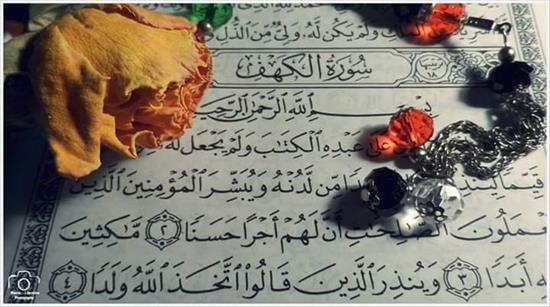 ٱلْمُلْكِ وَلَمْ يَكُن لَّهُۥ وَلِىٌّ مِّنَ ٱلذُّلِّ
سُورَةُ الكَهْفِ
١٨
بِسْمِ ٱللَّهِ ٱلرَّحْمَٰنِ ٱلرَّحِيمِ
عَلَىٰ عَبْدِهِ ٱلْكِتَٰبَ وَلَمْ يَجْعَل لَّهُۥ
قَيِّمًا مِّن لَّدُنْهُ وَيُبَشِّرَ ٱلْمُؤْمِنِينَ ٱلَّذِينَ
يَعْمَلُونَ ٱلصَّٰلِحَٰتِ أَنَّ لَهُمْ أَجْرًا حَسَنًا ٢ مَّٰكِثِينَ
أَبَدًا ٣ وَيُنذِرَ ٱلَّذِينَ قَالُوا۟ ٱتَّخَذَ ٱللَّهُ وَلَدًا ٤
Photography